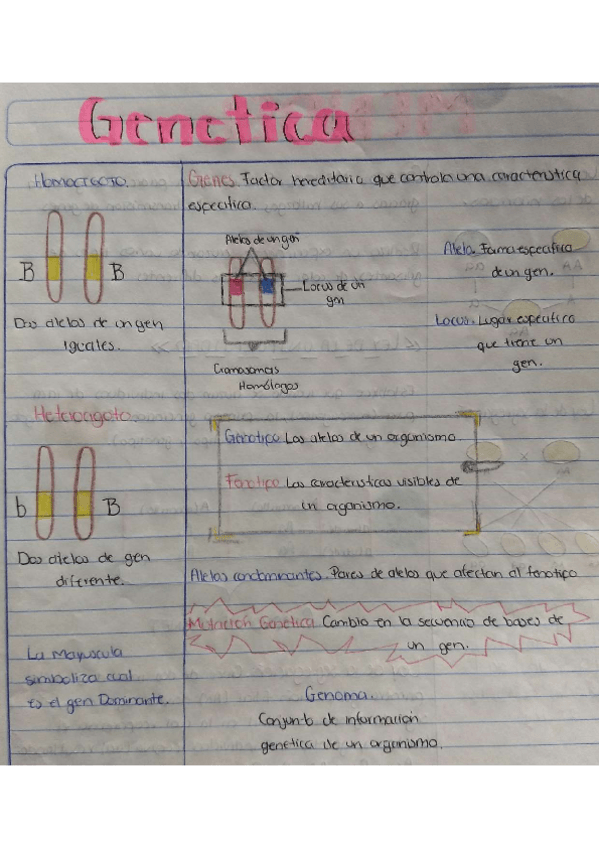 Genetica
Homocigoto.
B B
Dos alelos de un gen
iguales.
Heterocigoto
b B
Dos alelos de gen
diferente.
La Mayuscula
simboliza cual
es el gen Dominante.
Genes. Factor hereditario que controla una caracteristica
especifica.
Alelos de un gen
Locus de un
gen
Cromosomas
Homólogos
Alelo. Forma especifica
de un gen.
Locus. Lugar especifico
que tiene un
gen.
Genotipo Los alelos de un organismo.
Fenotipo Las caracteristicas visibles de
un organismo.
Alelos condominantes. Pares de alelos que afectan al fenotipo
Mutación Genética. Cambio en la secuencia de bases de
un gen.
Genoma.
Conjunto de información
genetica de un organismo.